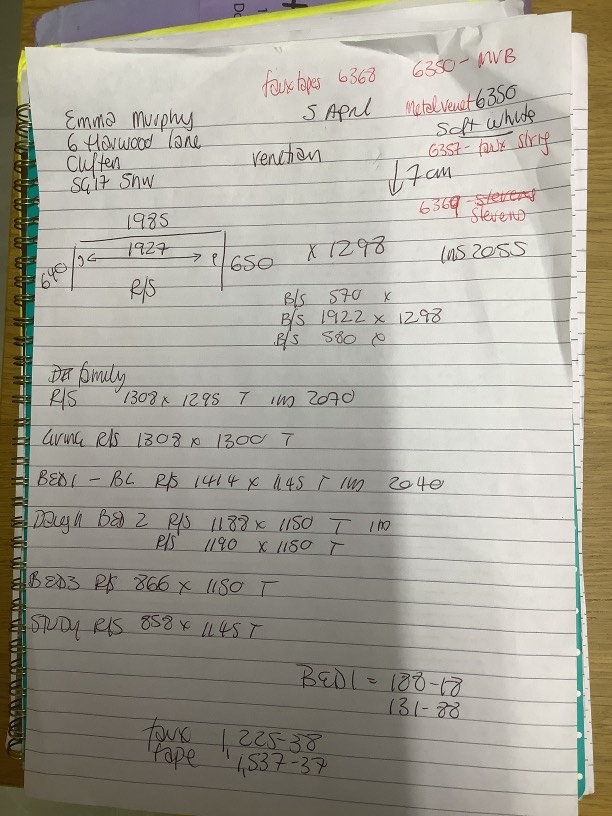 faux tapes 6368 6350 - MVB
5 April Metal venet 6350
Soft white
Emma Murphy
6 Harwood Lane
Cliften venetian 6357 - faux string
SG17 5HW ↓ 7cm
6369 - Stevens
Stevens
1985
640 1927 650 x 1298 INS 2055
R/S
B/S 570 x
B/S 1922 x 1298
B/S 580 x
family
R/S 1308 x 1295 T IN 2070
living R/S 1308 x 1300 T
BED1 - BL R/S 1414 x 1145 T IN 2040
Daugh Bed 2 R/S 1188 x 1150 T IN
R/S 1190 x 1150 T
BED3 R/S 866 x 1150 T
STUDY R/S 858 x 1145 T
BED1 = 188-18
131-88
faux 1,225-38
tape 1,537-37